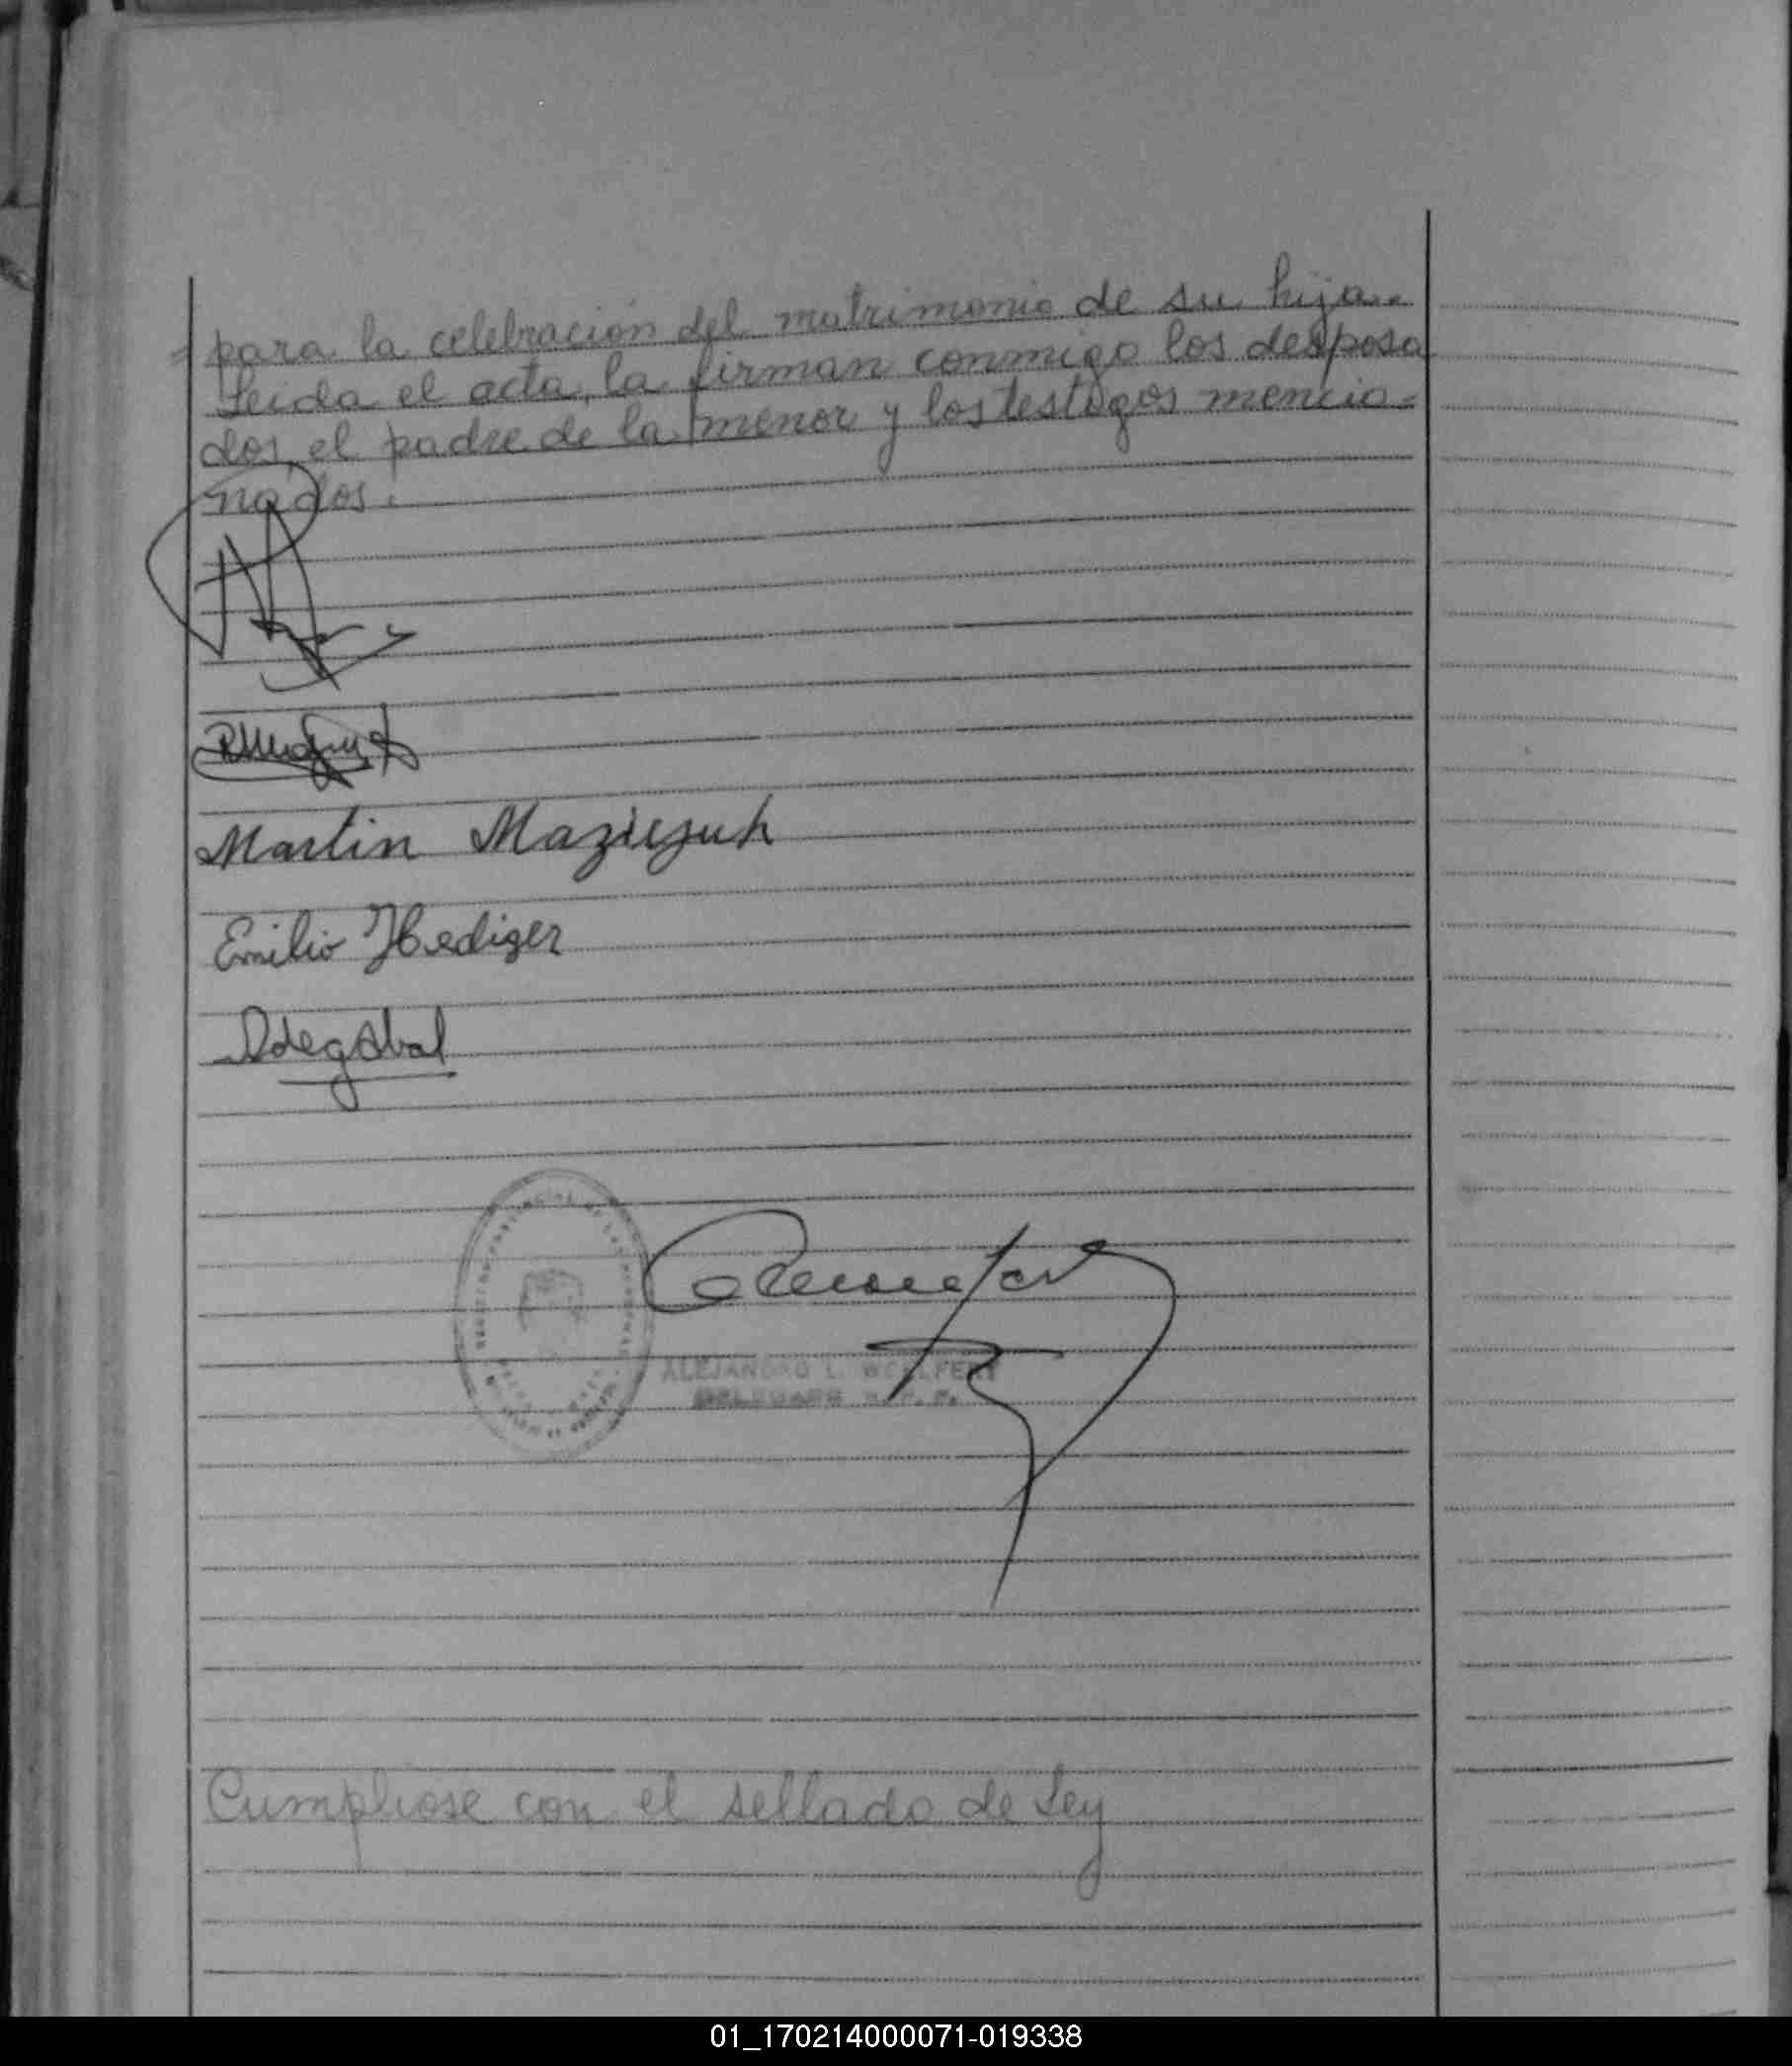 = para la celebración del matrimonio de su hija.=
Leida el acta, la firman conmigo los desposa
dos, el padre de la menor y los testigos mencio=
nados.
Martin
Emilio Hediger
ALEJANDRO L.
Cumpliose con el sellado de Ley
01_170214000071-019338